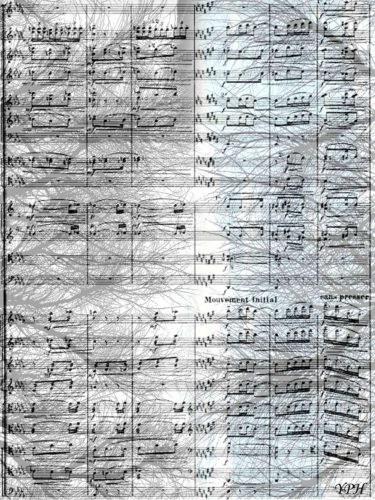 Mouvement Initial
sans presser
YPH